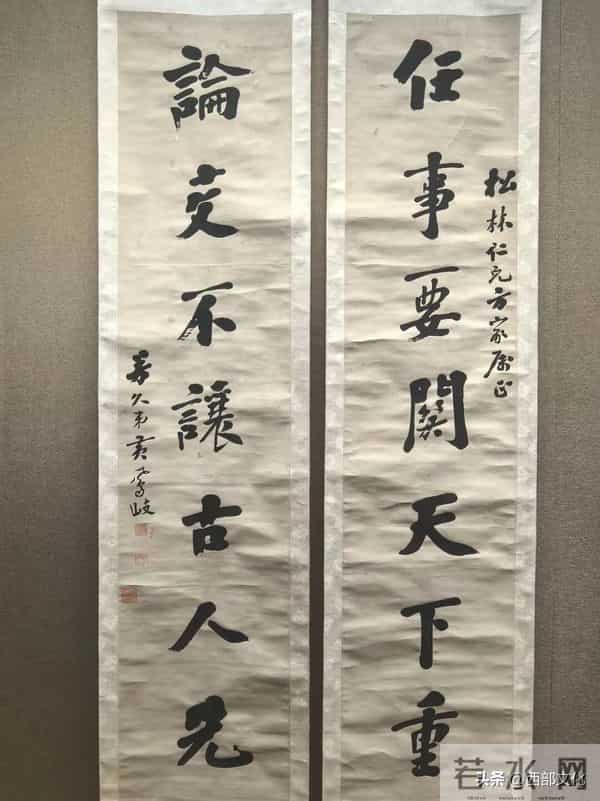 松林仁兄方家属正
任事要關天下重
論交不讓古人先
芳久弟黃鳳岐
若水网
头条 @西部文化